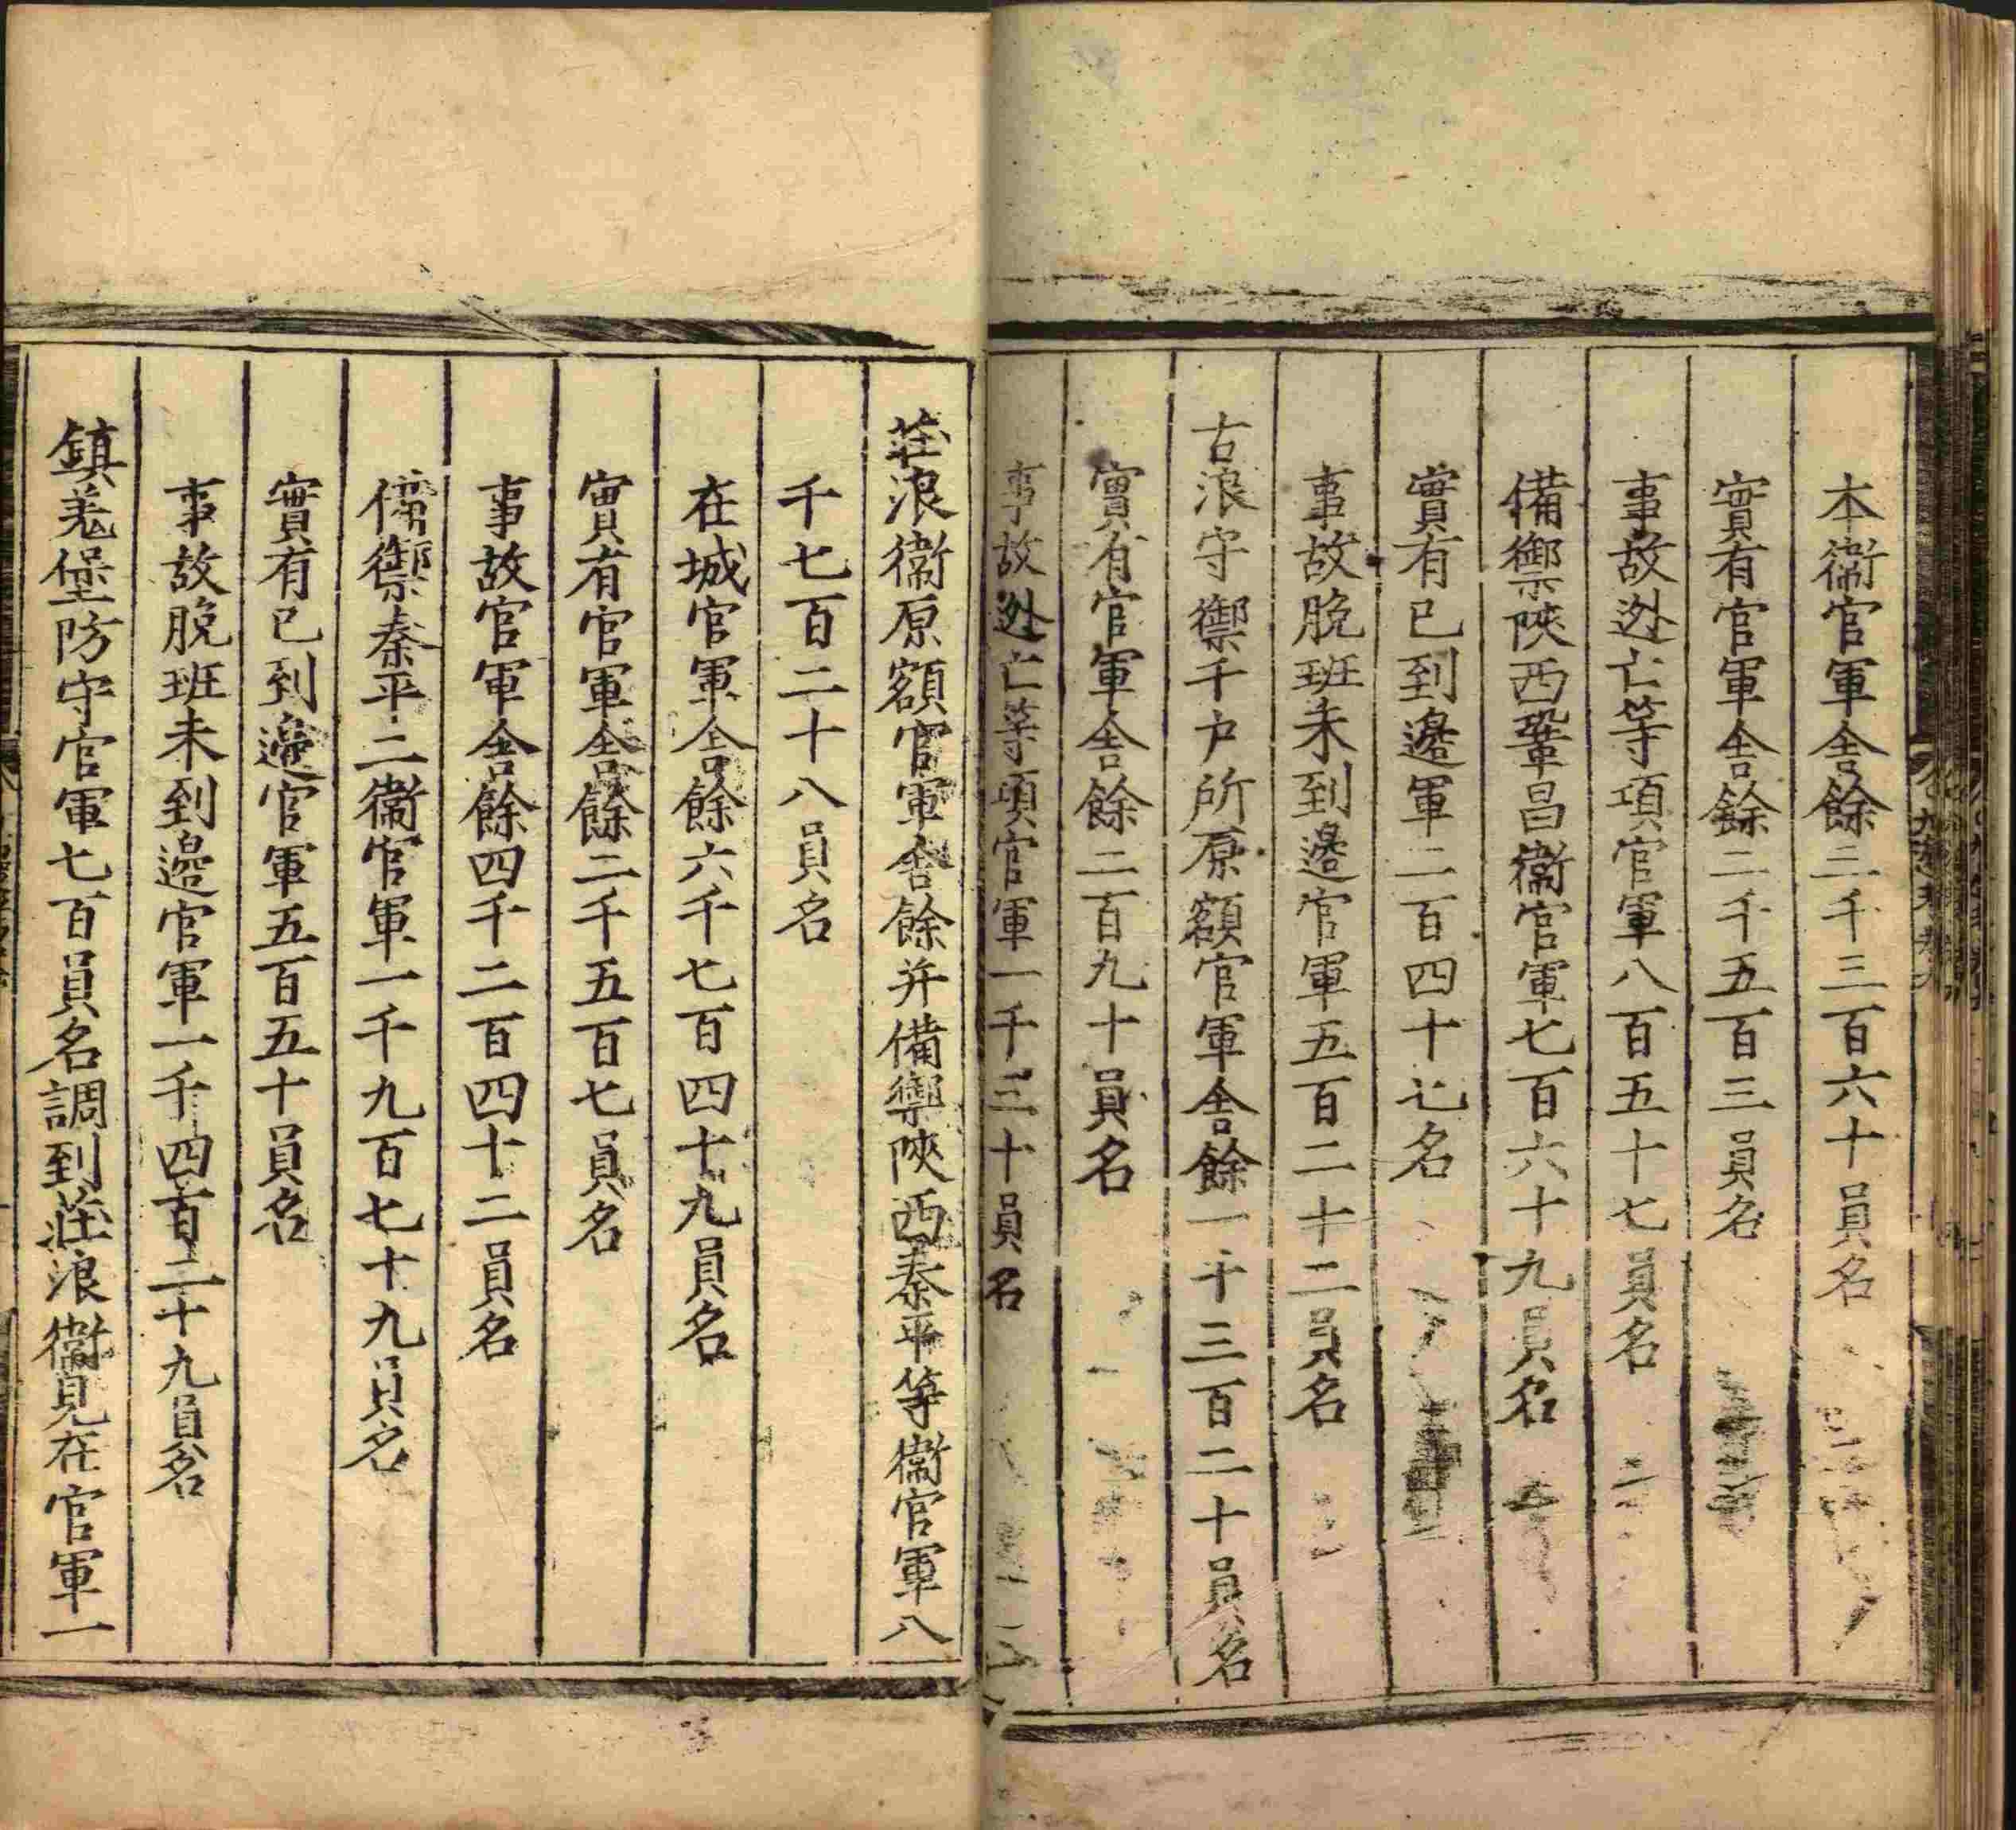 本衞官軍舎餘三千三百六十員名
實有官軍舎餘二千五百三員名
事故迯亡等項官軍八百五十七員名
備禦陝西鞏昌衞官軍七百六十九員名
實有已到邊軍二百四十七名
事故脫班未到邊官軍五百二十二員名
古浪守禦千户所原額官軍舎餘一千三百二十員名
實有官軍舎餘二百九十員名
事故迯亡等項官軍一千三十員名
莊浪衞原額官軍舎餘并備禦陝西秦平等衞官軍八
千七百二十八員名
在城官軍舎餘六千七百四十九員名
實有官軍舎餘二千五百七員名
事故官軍舎餘四千二百四十二員名
備禦秦平二衞官軍一千九百七十九員名
實有已到邊官軍五百五十員名
事故脫班未到邊官軍一千四百二十九員名
鎮羗堡防守官軍七百員名調到莊浪衞見在官軍一